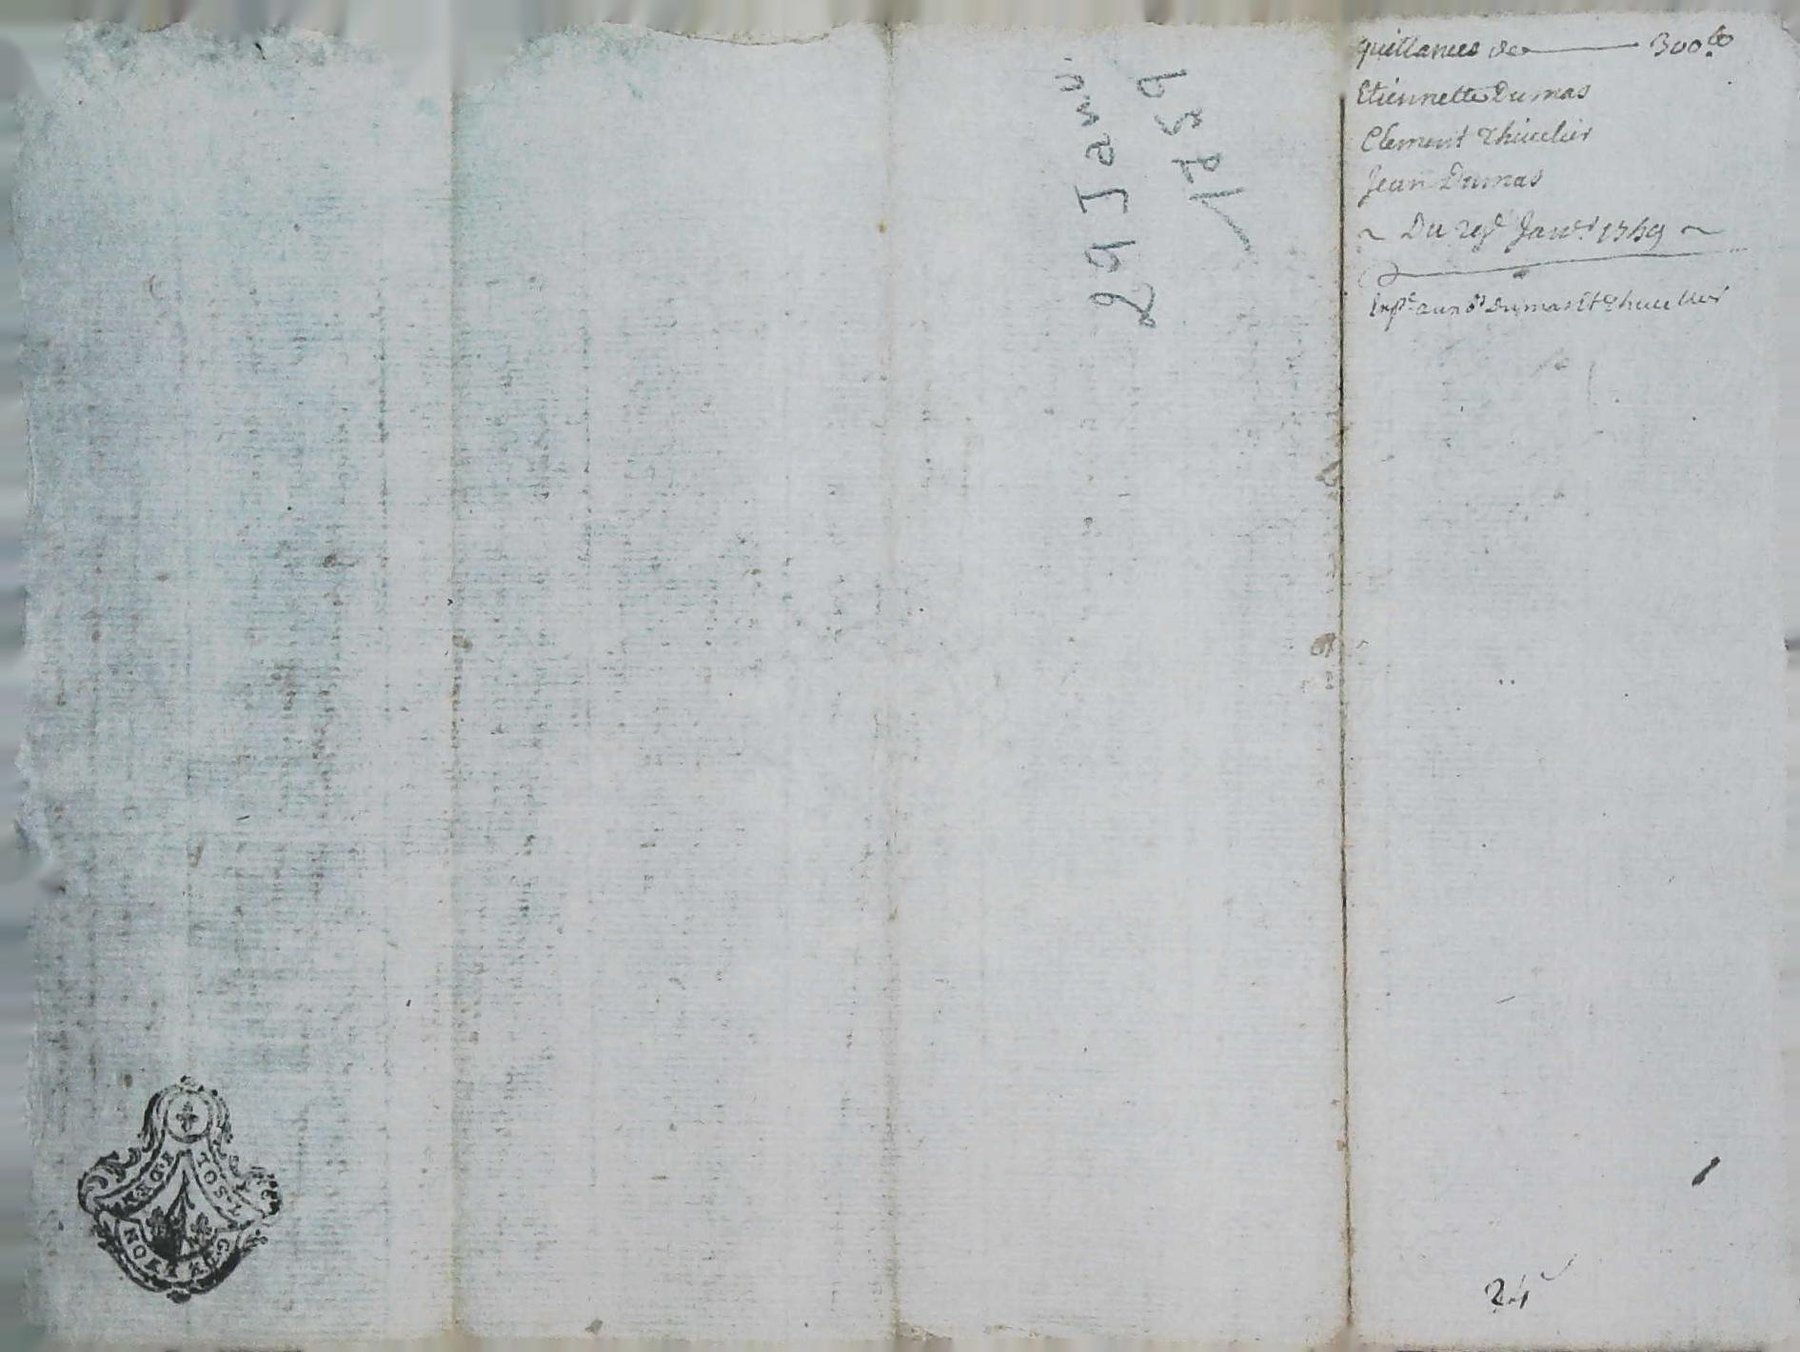 quittances de 300 ₶
Etiennette Dumas
Clement Thivelier
Jean Dumas
~ Du 29e Janvr 1759 ~
Expe aux Srs Dumas Et Thivellier
29 Janv.
1759
24